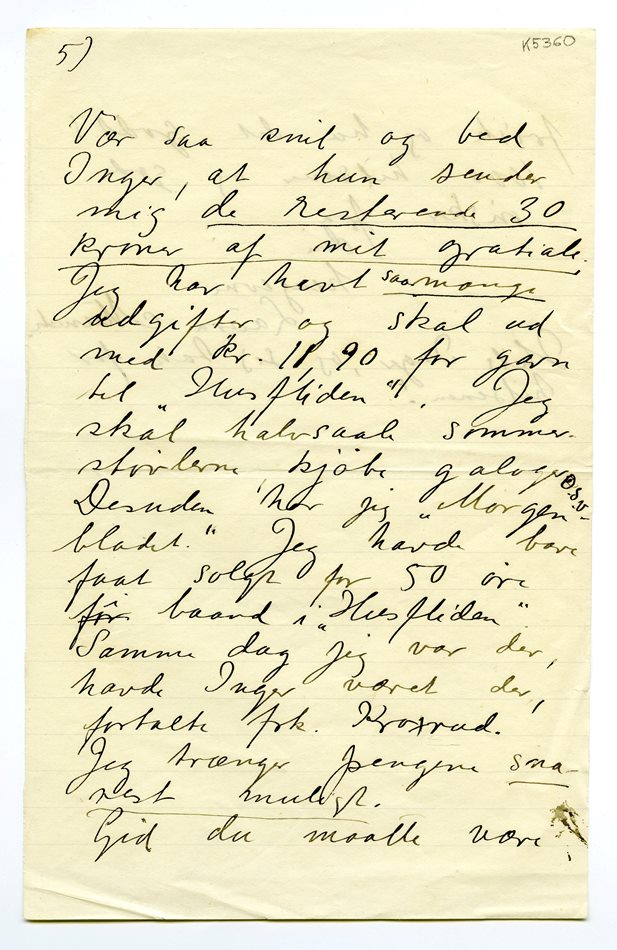 5)
K5360
Vær saa snil og bed
Inger, at hun sender
mig de resterende 30
kroner af mit gratiale.
Jeg har havt saamange
udgifter og skal ud
med kr. 11,90 for garn
til "Husfliden". Jeg
skal halvsaale sommer-
støvlerne, kjøbe galoger o.s.v.
Desuden har jeg "Morgen-
bladet." Jeg havde bare
faat solgt for 50 øre
for baand i "Husfliden".
Samme dag jeg var der,
havde Inger været der,
fortalte frk. Kroxrud.
Jeg trænger pengene sna-
rest muligt.
Gid du maatte være